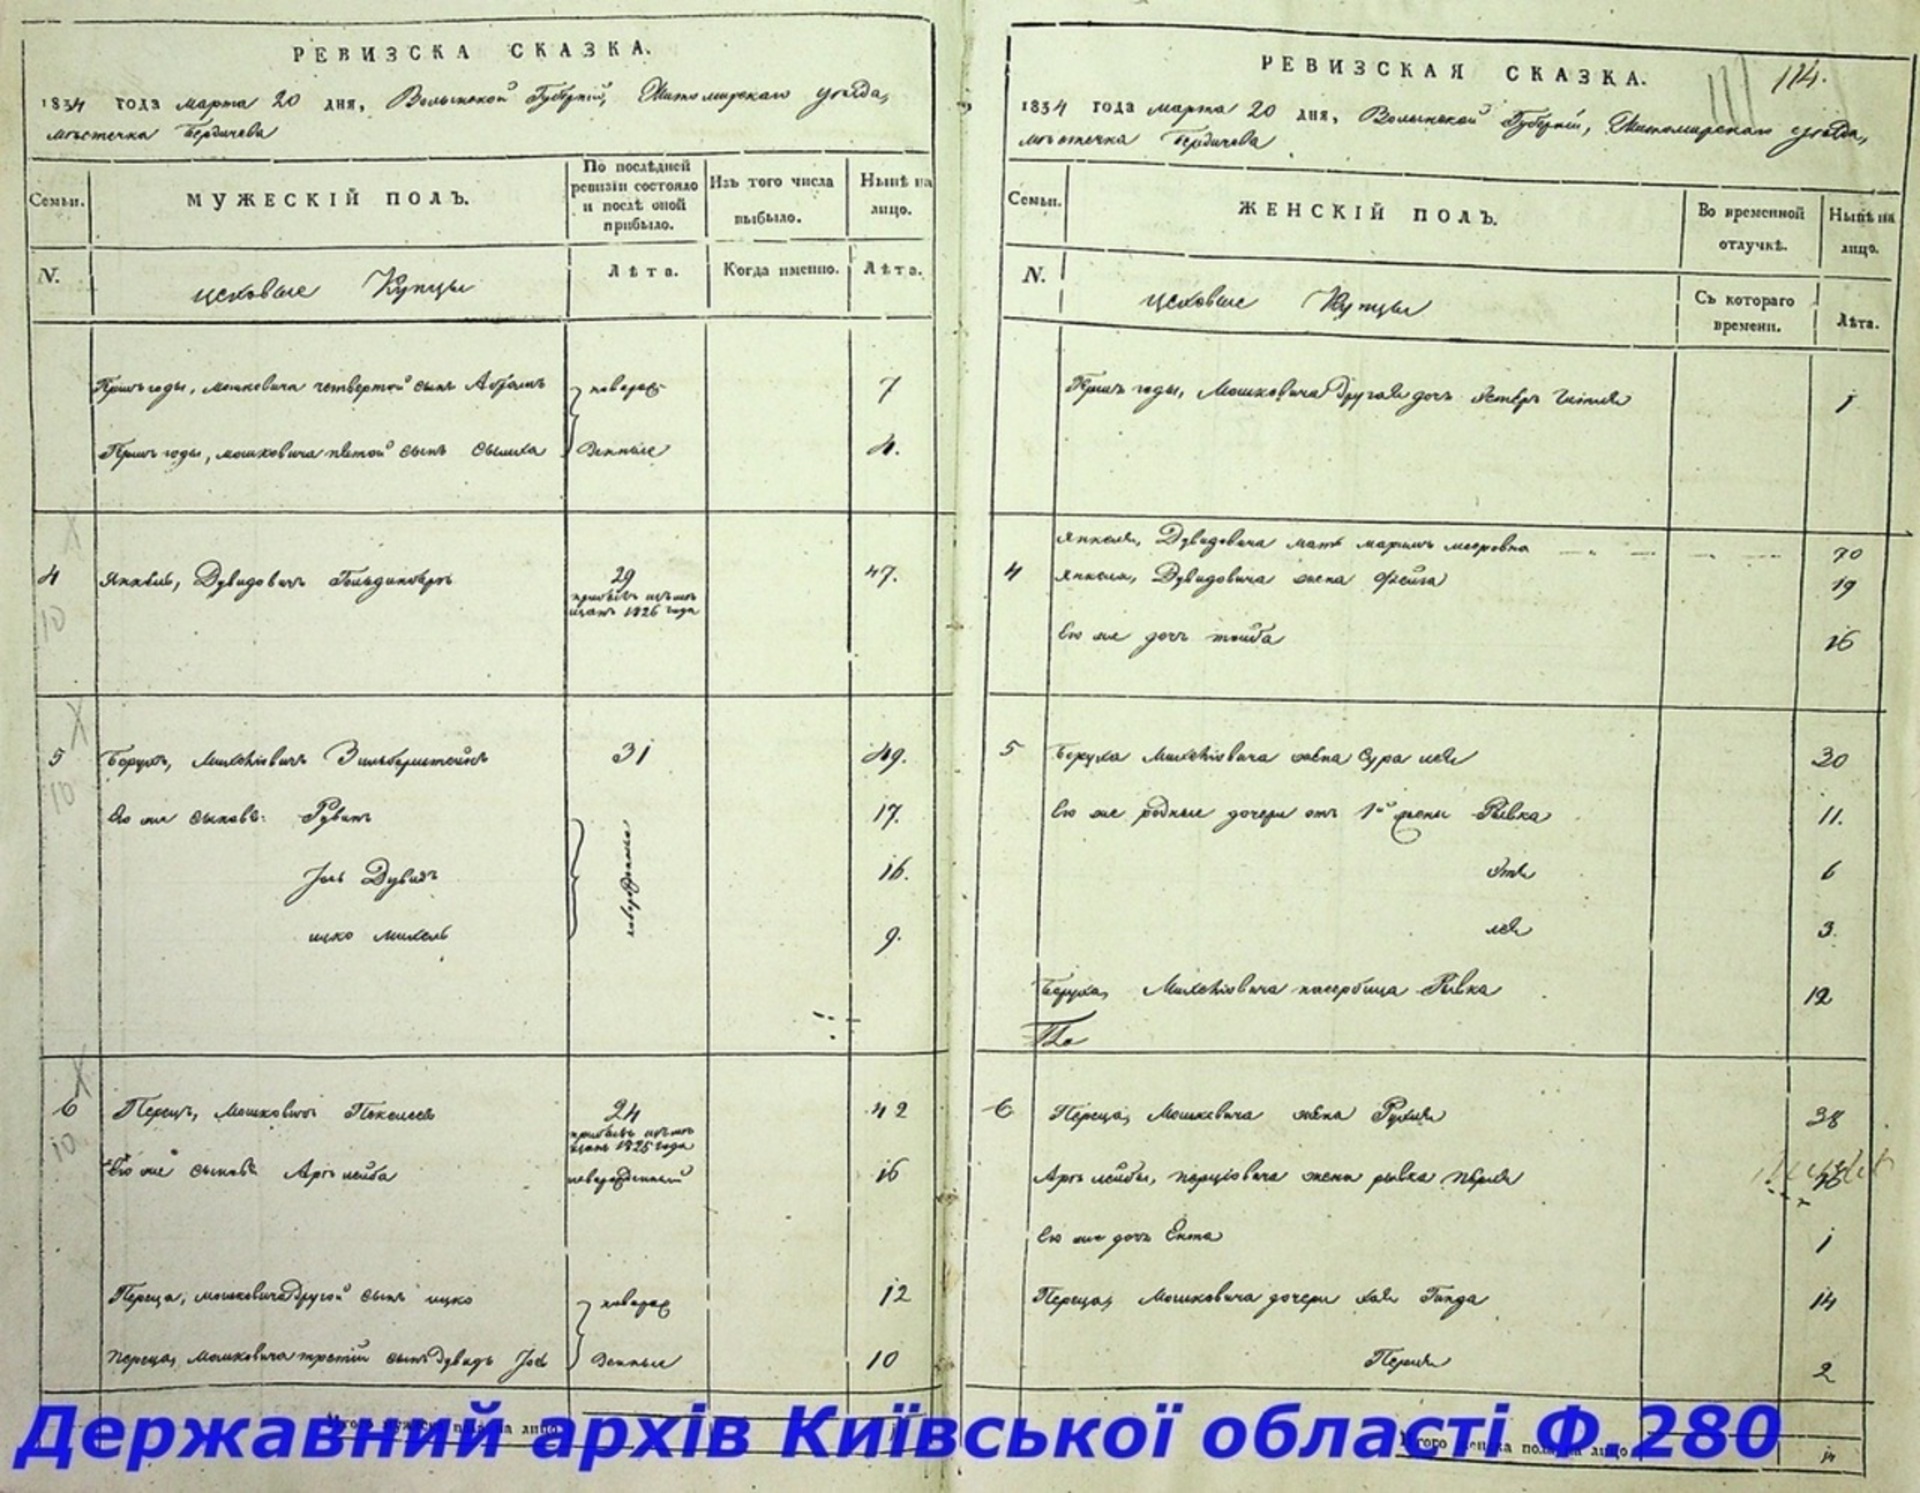 РЕВИЗСКА СКАЗКА.
1834 года марта 20 дня, Волынской Губерніи, Житомирскаго уѣзда,
мѣстечка Бердичева
Семьи.
МУЖЕСКІЙ ПОЛЪ.
По послѣдней ревизіи состояло и послѣ оной прибыло.
Изъ того числа выбыло.
Нынѣ на лицо.
N.
цеховые Купцы
Лѣта.
Когда именно.
Лѣта.
Мошковича четвертой сынъ Абрамъ
новорож
7
мошковича пятой сынъ
денные
4.
4
Янкель, Дувидовичъ Гольденбергъ
29
прибылъ
1826 года
47.
10
5
Борухъ, Михелiовичъ Зильберштейнъ
31
49.
10
Его же сыновь: Рувинъ
17.
Іось Дувидъ
новорожденные
16.
ицко михель
9.
6
Перецъ, Мошковичъ
24
прибылъ
1825 года
42
10
Его же сыновь Аръ лейба
новорожденный
16
Переца, мошковича другой сынъ ицко
новорож
12
Переца, Мошковича третій сынъ Дувидъ Іось
денные
10
Итого мужеска пола на лицо
РЕВИЗСКАЯ СКАЗКА.
114.
1834 года марта 20 дня, Волынской Губерніи, Житомирскаго уѣзда,
мѣстечка Бердичева
Семьи.
ЖЕНСКІЙ ПОЛЪ.
Во временной отлучкѣ.
Нынѣ на лицо.
N.
цеховые Купцы
Съ котораго времени.
Лѣта.
Мошковича другая дочь Естеръ
1
Янкеля, Дувидовича мать маримъ мееровна
70
4
Янкеля, Дувидовича жена Фейга
19
Его же дочь тойба
16
5
Боруха Михелiовича жена Сура лея
30
Его же родные дочери отъ 1й жены Рывка
11.
6
лея
3.
Боруха, Михелiовича пасербица Рывка
12
6
Переца, Мошковича жена Рухля
38
Аръ лейбы, перцiовича жена рывка перля
Его же дочь Ента
1
Переца, Мошковича дочери хая Генда
14
Перля
2
Итого женска пола на лицо
Державний архів Київської області Ф.280